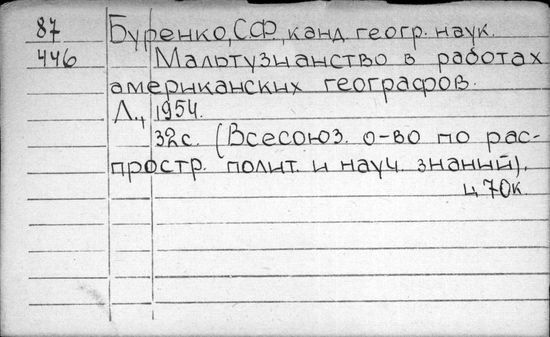 87 Буренко, С.Ф., канд. геогр. наук.
446 Мальтузианство в работах
американских географов.
Л., 1954.
32с. (Всесоюз. о-во по рас-
простр. полит. и науч. знаний).
ц 70к